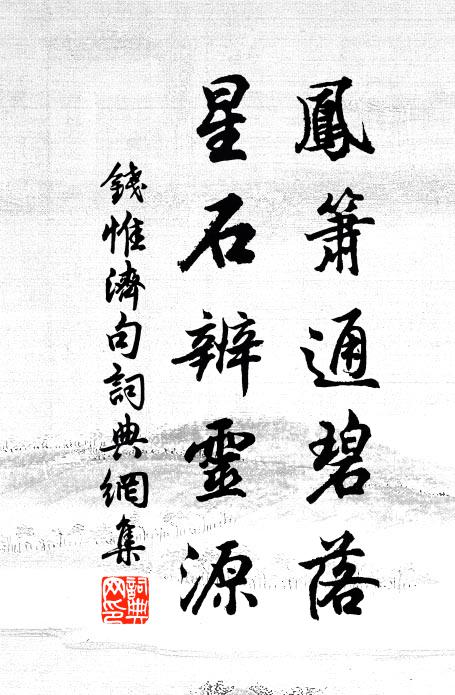 鳳簫通碧落
星石辨靈源
錢惟濟句詞典網集
詞典网印